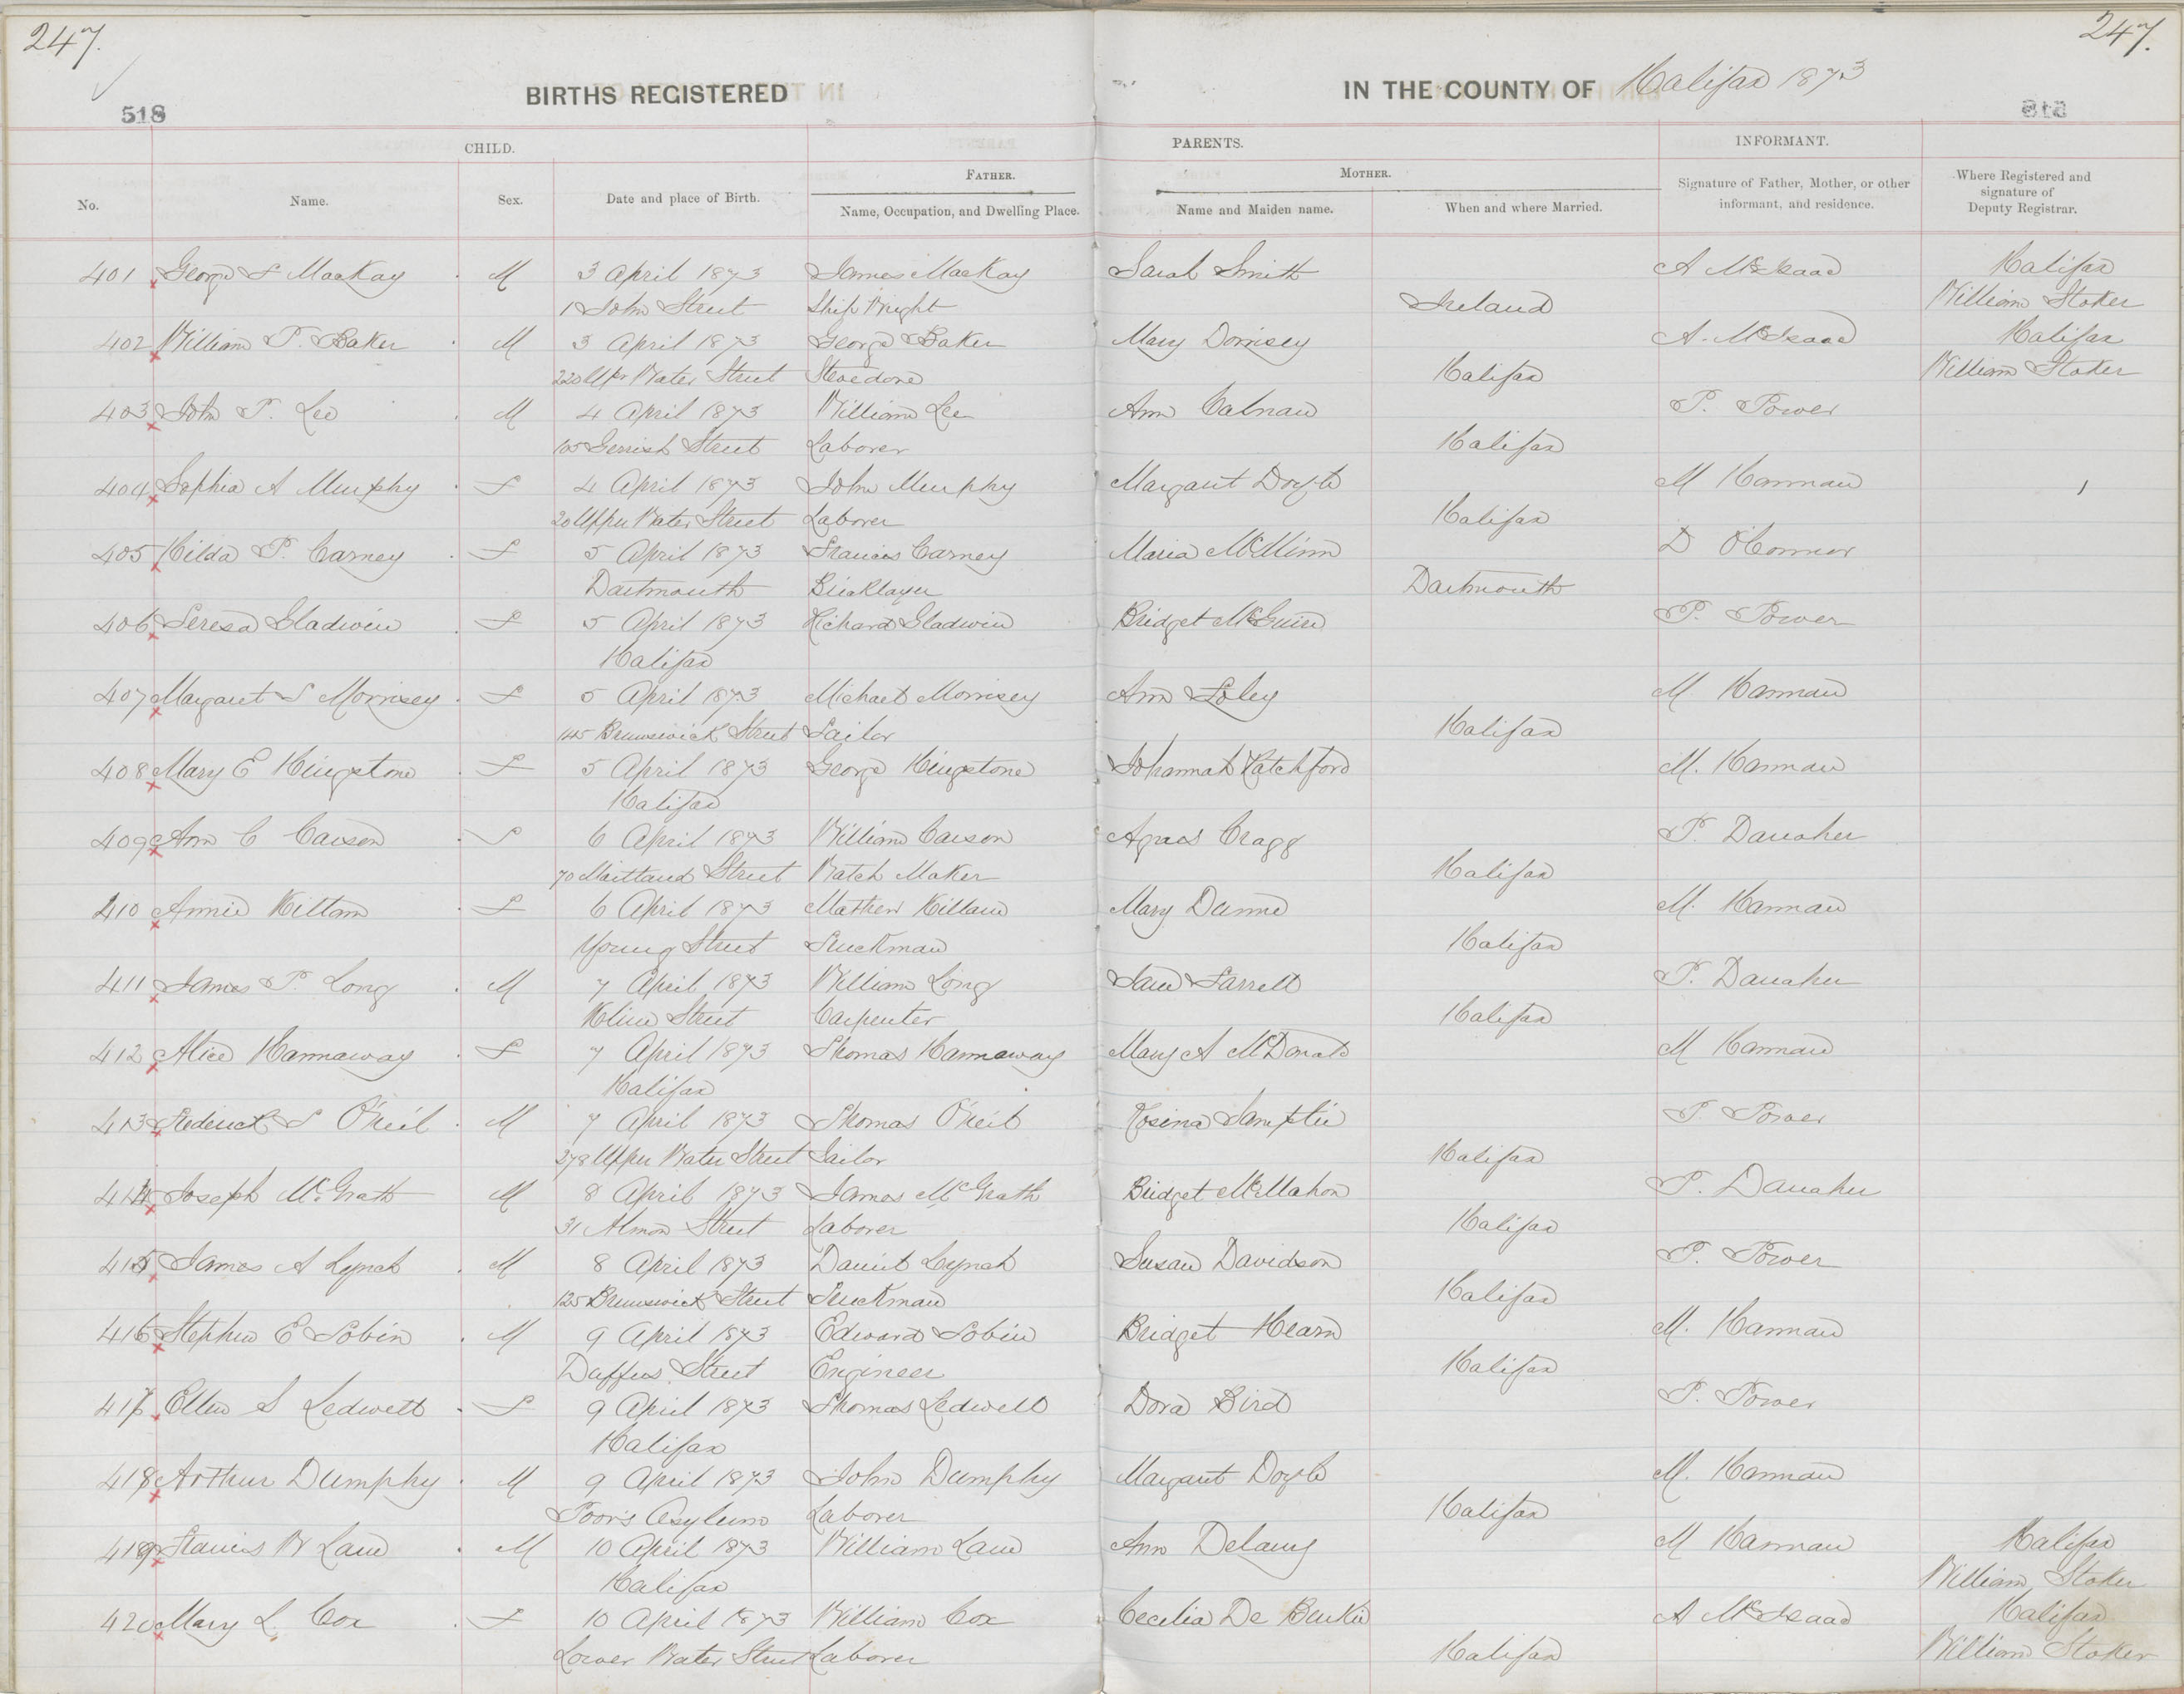 247.
247.
BIRTHS REGISTERED
IN THE COUNTY OF Halifax 1873
518
518
CHILD.
PARENTS.
INFORMANT.
FATHER.
MOTHER.
No.
Name.
Sex.
Date and place of Birth.
Name, Occupation, and Dwelling Place.
Name and Maiden name.
When and where Married.
Signature of Father, Mother, or other
informant, and residence.
Where Registered and
signature of
Deputy Registrar.
401 George S MacKay M 3 April 1873 James MacKay Sarah Smith A McIsaac Halifax
1 John Street Ship Wright Ireland William Stoker
402 William P. Baker M 3 April 1873 George Baker Mary Dorrisey A. McIsaac Halifax
220 Upr Water Street Stevedore Halifax William Stoker
403 John P. Lee M 4 April 1873 William Lee Ann Calnan P. Power
105 Gerrish Street Laborer Halifax
404 Sophia A Murphy F 4 April 1873 John Murphy Margaret Doyle M Hannan
20 Upper Water Street Laborer Halifax
405 Hilda P. Carney F 5 April 1873 Francis Carney Maria McMinn D O'Connor
Dartmouth Bricklayer Dartmouth
406 Teresa Gladwin F 5 April 1873 Richard Gladwin Bridget McGuire P. Power
Halifax
407 Margaret T Morrisey F 5 April 1873 Michael Morrisey Ann Foley M. Hannan
145 Brunswick Street Tailor Halifax
408 Mary E Kingstone F 5 April 1873 George Kingstone Johannah Ratchford M. Hannan
Halifax
409 Ann C Carson F 6 April 1873 William Carson Agnes Cragg P. Danaher
70 Maitland Street Watch Maker Halifax
410 Annie Killam F 6 April 1873 Mathew Killam Mary Dunne M. Hannan
Young Street Truckman Halifax
411 James P. Long M 7 April 1873 William Long Jane Farrell P. Danaher
Kline Street Carpenter Halifax
412 Alice Hannaway F 7 April 1873 Thomas Hannaway Mary A McDonald M Hannan
Halifax
413 Frederick T O'Neil M 7 April 1873 Thomas O'Neil Rosina P. Power
278 Upper Water Street Tailor Halifax
414 Joseph McGrath M 8 April 1873 James McGrath Bridget McMahon P. Danaher
31 Almon Street Laborer Halifax
415 James A Lynch M 8 April 1873 Daniel Lynch Susan Davidson P. Power
125 Brunswick Street Truckman Halifax
416 Stephen E Tobin M 9 April 1873 Edward Tobin Bridget Hearn M. Hannan
Duffus Street Engineer Halifax
417 Ellen S Ledwell F 9 April 1873 Thomas Ledwell Dora Bird P. Power
Halifax
418 Arthur Dumphy M 9 April 1873 John Dumphy Margaret Doyle M. Hannan
Poor's Asylum Laborer Halifax
419 Francis W Lane M 10 April 1873 William Lane Ann Delany M Hannan Halifax
Halifax William Stoker
420 Mary L. Cox F 10 April 1873 William Cox Cecelia De A McIsaac Halifax
Lower Water Street Laborer Halifax William Stoker